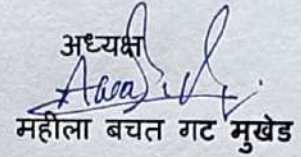 अध्यक्ष
महीला बचत गट मुखेड